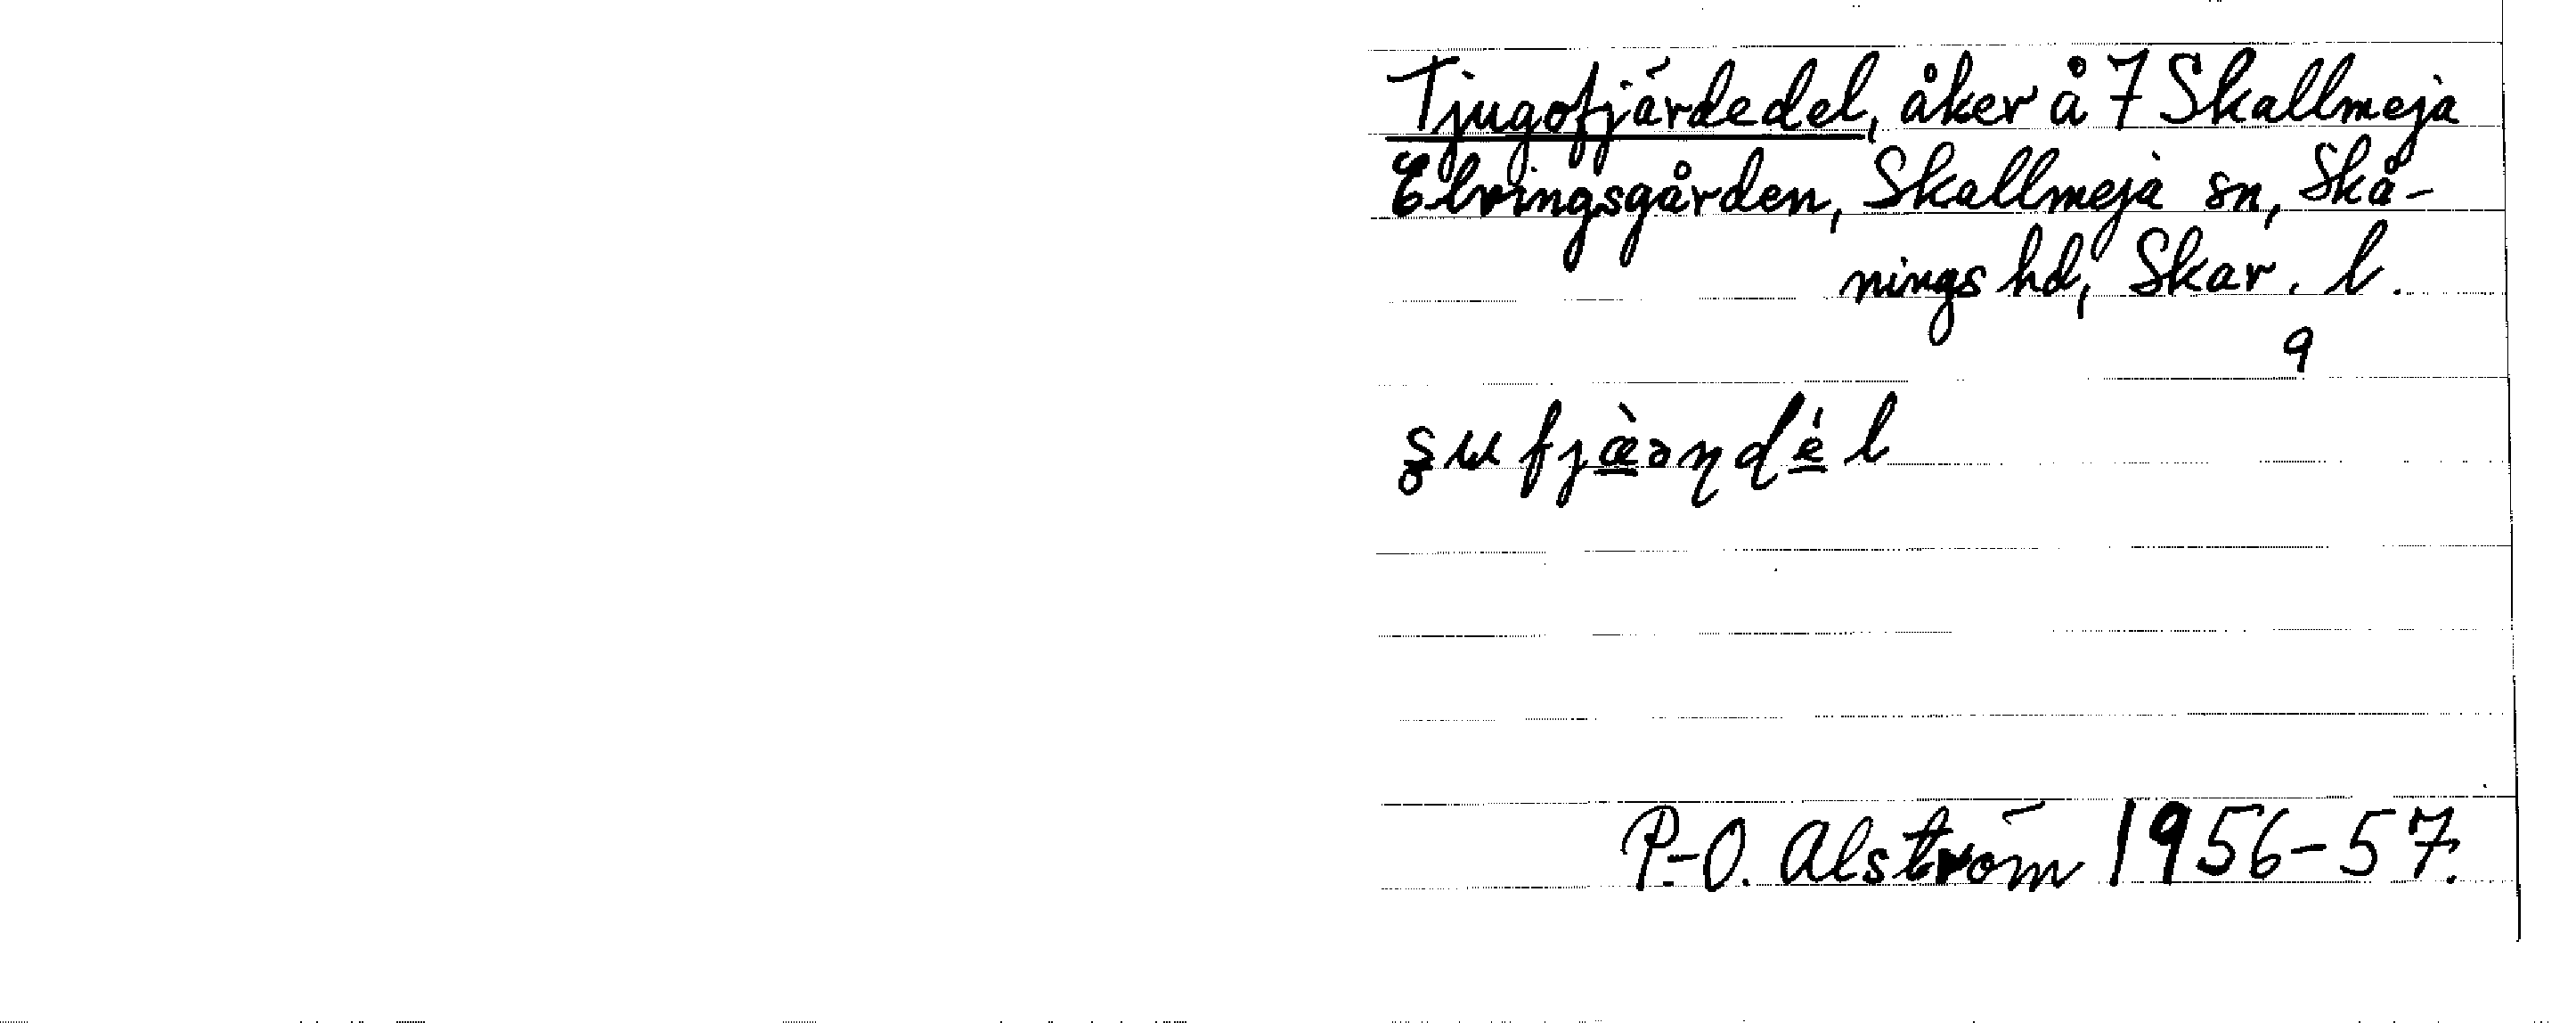 Tjugofjärdedel, åker å 7 Skallmeja
Elvingsgården, Skallmeja sn, Skå-
nings hd, Skar. l.
9
P.-O. Alström 1956-57.